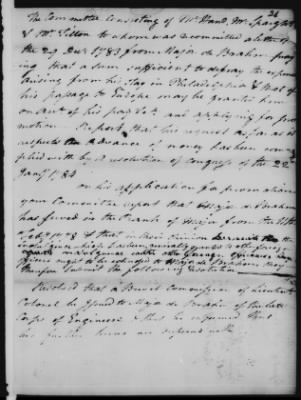 21
The Committee consisting of Mr Hand, Mr Spaight
& Mr to whom was committed a letter of
the 29 Decr 1783 from Major de Brahm pray
ing that a sum sufficient to defray the expence
arising from his Stay in Philadelphia & that of
his passage to Europe may be granted him
on Acct of his pay &c and applying for pro
motion. Report, that his request as far as it
respects the Advance of money has been com
plied with by a resolution of Congress of the 22d
Jany 1784
on his application for promotion
your Committee report that Major de Brahm
has served in the rank of Major from the
of 1778 & that in their opinion
the
Indulgence which has been
officers ought to be extended to Major de Brahm, they
therefore submit the following resolution
Resolved that a Brevet Commission of Lieutenant
Colonel be issued to Major de Brahm of the late
Corps of Engineers & that he be informed that
his further